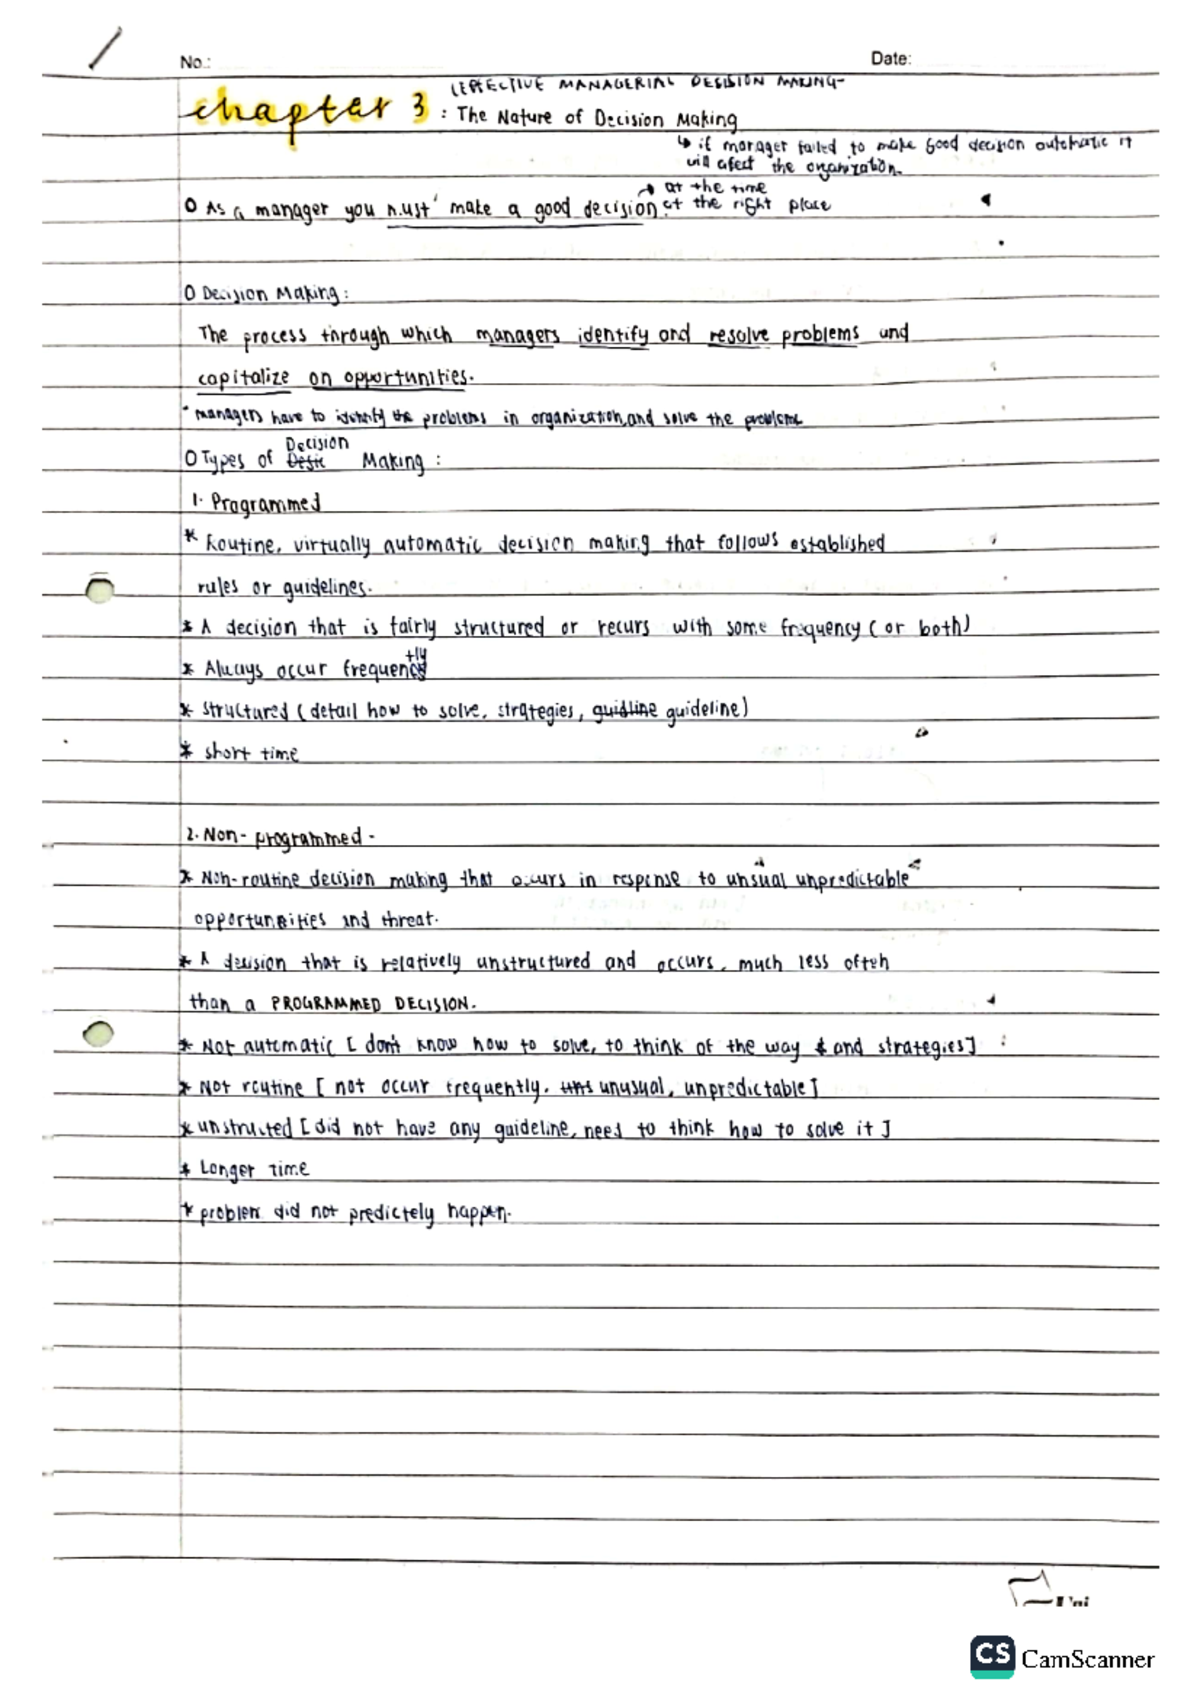 No.:
Date:
(EFFECTIVE MANAGERIAL DESISION MAKING-
chapter 3 : The Nature of Decision Making
↳ if manager failed to make good decision automatic it
will afect the organization.
→ at the time
O As a manager you must make a good decision. at the right place
O Decision Making:
The process through which managers identify and resolve problems and
capitalize on opportunities.
* managers have to identify the problems in organization, and solve the problems
Decision
O Types of Desic Making :
1. Programmed
* Routine, virtually automatic decision making that follows established
rules or guidelines.
* A decision that is fairly structured or recurs with some frequency (or both)
* Always occur frequently
* Structured (detail how to solve, strategies, guidline guideline)
* short time
2. Non-programmed-
* Non-routine decision making that occurs in response to unsual unpredictable
opportunities and threat.
* A decision that is relatively unstructured and occurs, much less often
than a PROGRAMMED DECISION.
* Not automatic [ don't know how to solve, to think of the way & and strategies]
* Not routine [ not occur frequently. uns unusual, unpredictable]
* unstructed [did not have any guideline, need to think how to solve it ]
* Longer time
* problem did not predictely happen.
Uni
CS CamScanner